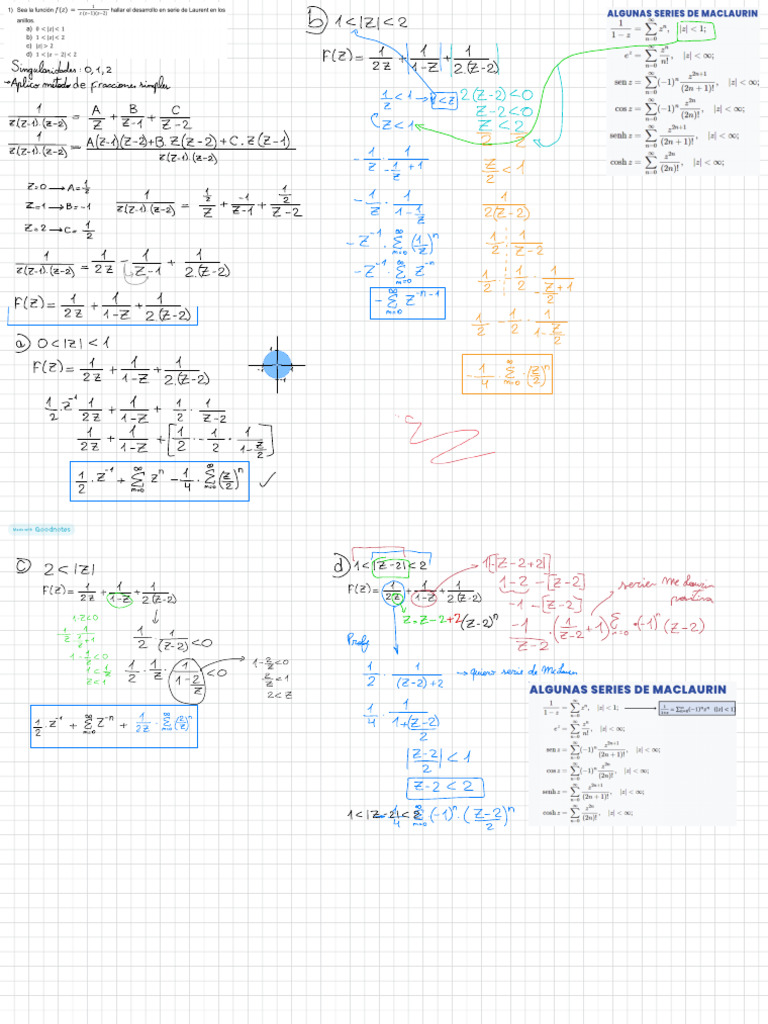 1) Sea la función f(z) = 1/(z(z−1)(z−2)) hallar el desarrollo en serie de Laurent en los
anillos.
a) 0 < |z| < 1
b) 1 < |z| < 2
c) |z| > 2
d) 1 < |z − 2| < 2
Singularidades: 0, 1, 2
→ Aplico metodo de fracciones simples
1/(z(z-1)·(z-2)) = A/z + B/(z-1) + C/(z-2)
1/(z(z-1)·(z-2)) = (A(z-1)(z-2)+B·z(z-2)+C·z(z-1))/(z(z-1)·(z-2))
z=0 → A=1/2
z=1 → B=-1
z=2 → C=1/2
1/(z(z-1)·(z-2)) = (1/2)/z + (-1)/(z-1) + (1/2)/(z-2)
1/(z(z-1)·(z-2)) = 1/(2z) - 1/(z-1) + 1/(2·(z-2))
F(z) = 1/(2z) + 1/(1-z) + 1/(2(z-2))
a) 0<|z|<1
F(z) = 1/(2z) + 1/(1-z) + 1/(2·(z-2))
1/2·z^-1 1/(2z) + 1/(1-z) + 1/2 · 1/(z-2)
1/(2z) + 1/(1-z) + [1/2 · -1/2 · 1/(1-z/2)]
1/2 · z^-1 + ∞Σn=0 z^n - 1/4 · ∞Σn=0 (z/2)^n ✓
b) 1<|z|<2
F(z) = 1/(2z) + |1/(1-z)| + |1/(2(z-2))|
1/z < 1 → 1<z
z<1
-1/z · 1/(-1/z+1)
-1/z · 1/(1-1/z)
-z^-1 · ∞Σn=0 (1/z)^n
-z^-1 · ∞Σn=0 z^-n
-∞Σn=0 z^(-n-1)
2(z-2)<0
z-2<0
z<2
2 2
z/2 < 1
1/(2(z-2))
1/2 · 1/(z-2)
1/2 · -1/2 · 1/(-z/2+1)
1/2 · -1/2 · 1/(1-z/2)
-1/4 · ∞Σn=0 · (z/2)^n
ALGUNAS SERIES DE MACLAURIN
1/(1−z) = ∞Σn=0 z^n, |z| < 1;
e^z = ∞Σn=0 z^n/n!, |z| < ∞;
sen z = ∞Σn=0 (−1)^n z^(2n+1)/(2n+1)!, |z| < ∞;
cos z = ∞Σn=0 (−1)^n z^(2n)/(2n)!, |z| < ∞;
senh z = ∞Σn=0 z^(2n+1)/(2n+1)!, |z| < ∞;
cosh z = ∞Σn=0 z^(2n)/(2n)!, |z| < ∞;
Made with Goodnotes
c) 2<|z|
F(z) = 1/(2z) + 1/(1-z) + 1/(2(z-2))
1-z<0
1-1/z<0
1<1/z
z<1
1/2 · 1/(z-2) <0
1/2 · 1/z · 1/(1-2/z) <0
1-2/z<0
2/z<1
2<z
1/2 · z^-1 + ∞Σn=0 z^-n + 1/(2z) · ∞Σn=0 (2/z)^n
d) 1<|z-2|<2
F(z) = 1/(2z) + 1/(1-z) + 1/(2(z-2))
z=z-2+2(z-2)^n
1-[z-2+2]
1-2-[z-2]
-1-[z-2]
-1/(z-2) · (1/(z-2)+1) ∞Σn=0 ·(-1)^n (z-2)
Profe
1/2 · 1/((z-2)+2) → quiero serie de Mclaurin
1/4 · 1/(1+(z-2)/2)
|z-2|/2 < 1
z-2<2
1<|z-2|<2 1/4 ∞Σn=0 ·(-1)^n · ((z-2)/2)^n
ALGUNAS SERIES DE MACLAURIN
1/(1−z) = ∞Σn=0 z^n, |z| < 1; → 1/(1+z) = Σ∞n=0(−1)^n z^n (|z| < 1)
e^z = ∞Σn=0 z^n/n!, |z| < ∞;
sen z = ∞Σn=0 (−1)^n z^(2n+1)/(2n+1)!, |z| < ∞;
cos z = ∞Σn=0 (−1)^n z^(2n)/(2n)!, |z| < ∞;
senh z = ∞Σn=0 z^(2n+1)/(2n+1)!, |z| < ∞;
cosh z = ∞Σn=0 z^(2n)/(2n)!, |z| < ∞;